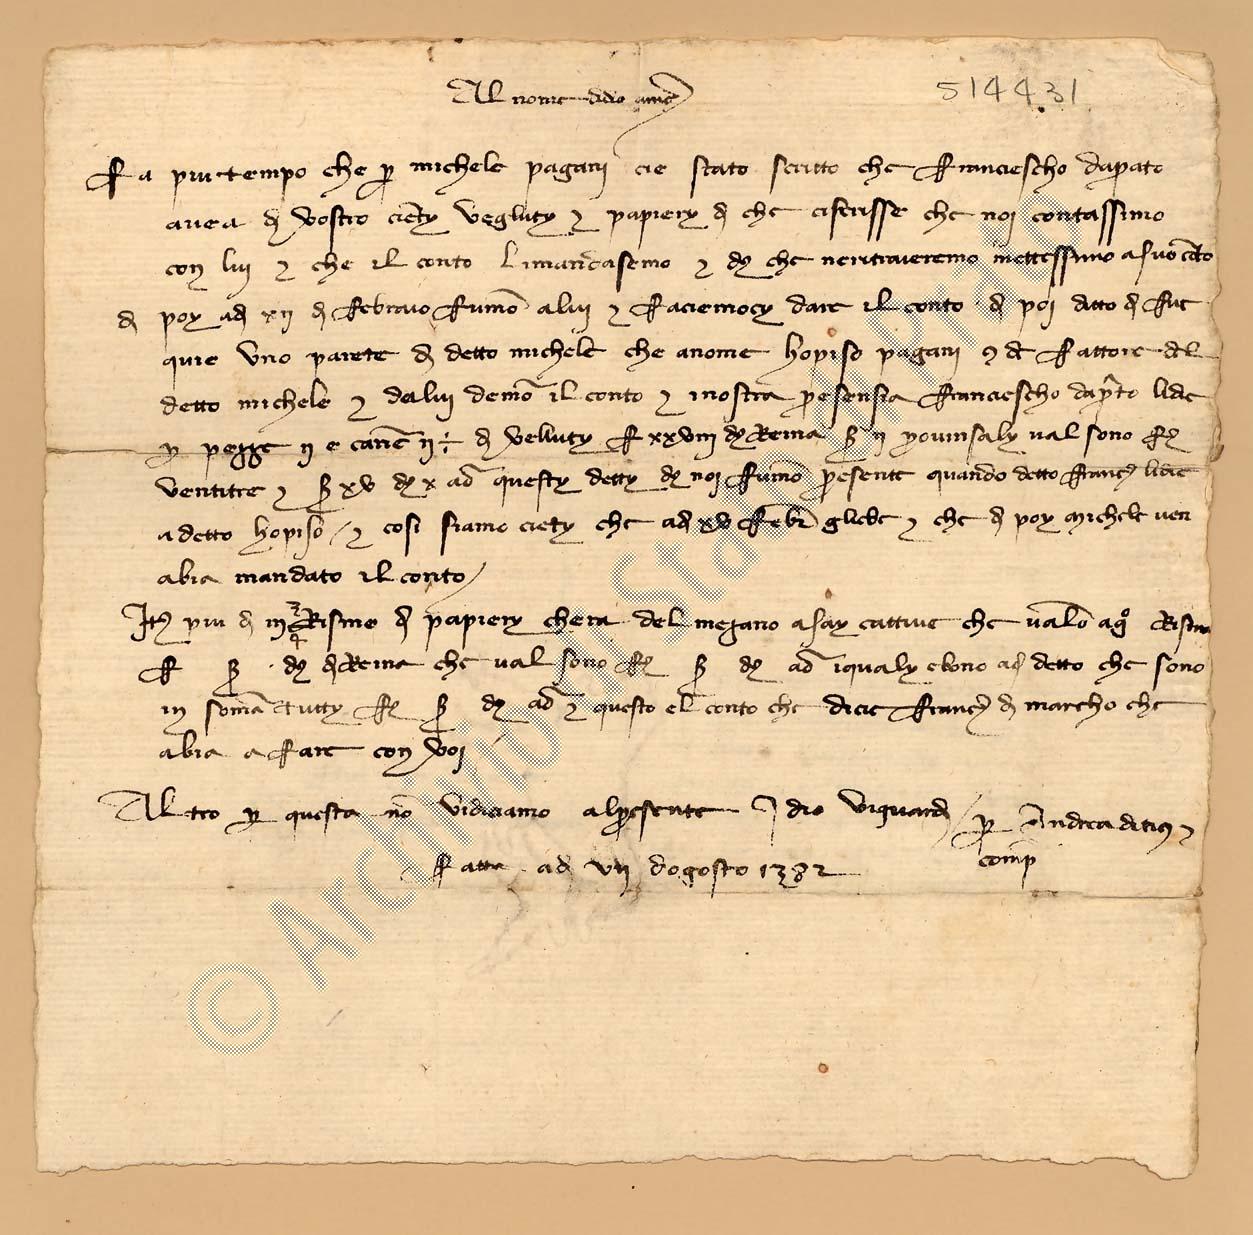 Al nome didio ame
514431
Fa piu tempo che p michele pagani cie stato scritto che franciescho daprato
avea di vostro cierty vegluty & papiery di che ciscrisse che noi contassimo
con lui & che il conto limandasemo & di che neritraveremo mettessimo a suo coto
di poy adi xii di febraio fumo allui & faciemocy dare il conto di poi ditto di fue
quie uno parete di detto michele che anome hopiso pagani fattore del
detto michele & dallui demo il conto & inostra presensia franciescho daprato lide
p pezze ii e cane ii di velluty f xxviii di Reina s ii provinsaly val sono ff
ventitre & s xv d x ad questy detty di noi fumo presente quando detto franc lidie
a detto hopiso / & cosi siamo ciety che adi xv febr gliele & che di poy Michele ven
abia mandato il conto /
Ite piu di iii Risme di papiery chera del megano asay cattive che valo Risma
f s d di Reina che val sono ff s d ad iqualy ebono adi detto che sono
in soma tutty ff s d ad & questo el conto che dicie franc di marcho che
abia a fare con voi
Altro p questa no vidiciamo al presente Idio viguardi / p Andrea & 
comp
fatta adi vii dogosto 1382
© Archivio di Stato di Prato